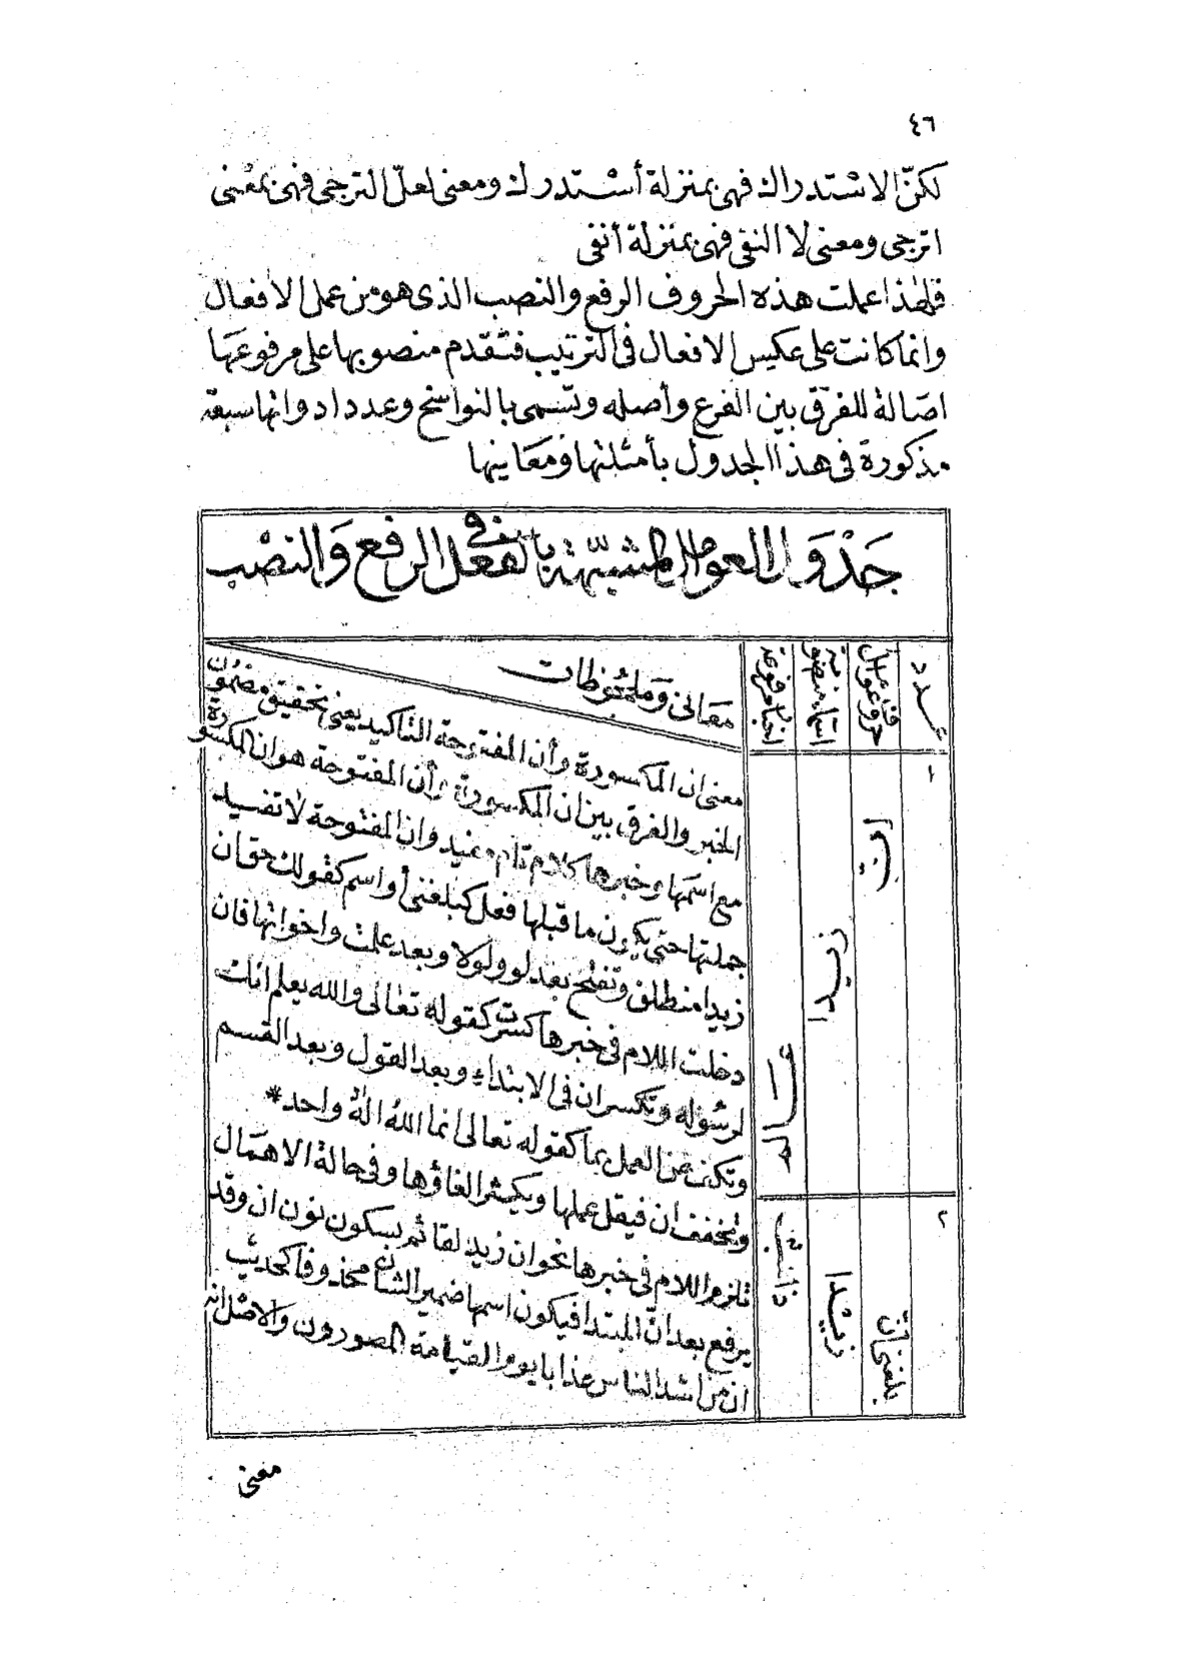 ٤٦
لكنّ الاستدراك فهى بمنزلة أستدرك ومعنى لعلّ الترجى فهى بمعنى
اترجى ومعنى لا النفى فهى بمنزلة أنفى
فلهذا عملت هذه الحروف الرفع والنصب الذى هو من عمل الافعال
وانما كانت على عكس الافعال فى الترتيب فتقدم منصوبها على مرفوعها
اصالة للفرق بين الفرع وأصله وتسمى بالنواسخ وعدد ادواتها سبعة
مذكورة فى هذا الجدول بأمثلتها ومعانيها
جَدْوَل العوامل المشبّهة بالفعل فى الرفع وَالنصْب
عدد
حروف عوامل
اسماء منصوبة
اخبار مرفوعة
معانى وَملحُوظات
١
انّ
زيدا
عالم
٢
بلغنى أنّ
زيْدا
ذاهبٌ
معنى ان المكسورة وأن المفتوحة التاكيد يعنى تحقيق مضمُون
الخبر والفرق بين ان المكسورة وأن المفتوحة هو ان المكسورة
مع اسمها وخبرها كلام تام مفيد وان المفتوحة لا تفسيد
جملتها حتى يكون ما قبلها فعل كبلغنى أو اسم كقولك حق ان
زيدا منطلق وتفتح بعد لو ولولا وبعد علمت واخواتها فان
دخلت اللام فى خبرها كسرت كقوله تعالى والله يعلم انك
لرسوله وتكسر ان فى الابتداء وبعد القول وبعد القسم
وتكف عن العمل بما كقوله تعالى انما اللهُ الهٌ واحد*
وتخفف ان فيقل عملها ويكثر الغاؤها وفى حالة الاهمال
تلزم اللام فى خبرها نحو ان زيد لقائم بسكون نون ان وقد
يرفع بعد انّ المبتدا فيكون اسمها ضمير الشان محذوفا كحديث
ان من اشد الناس عذابا يوم القيامة المصورون والاصْل انه
معنى